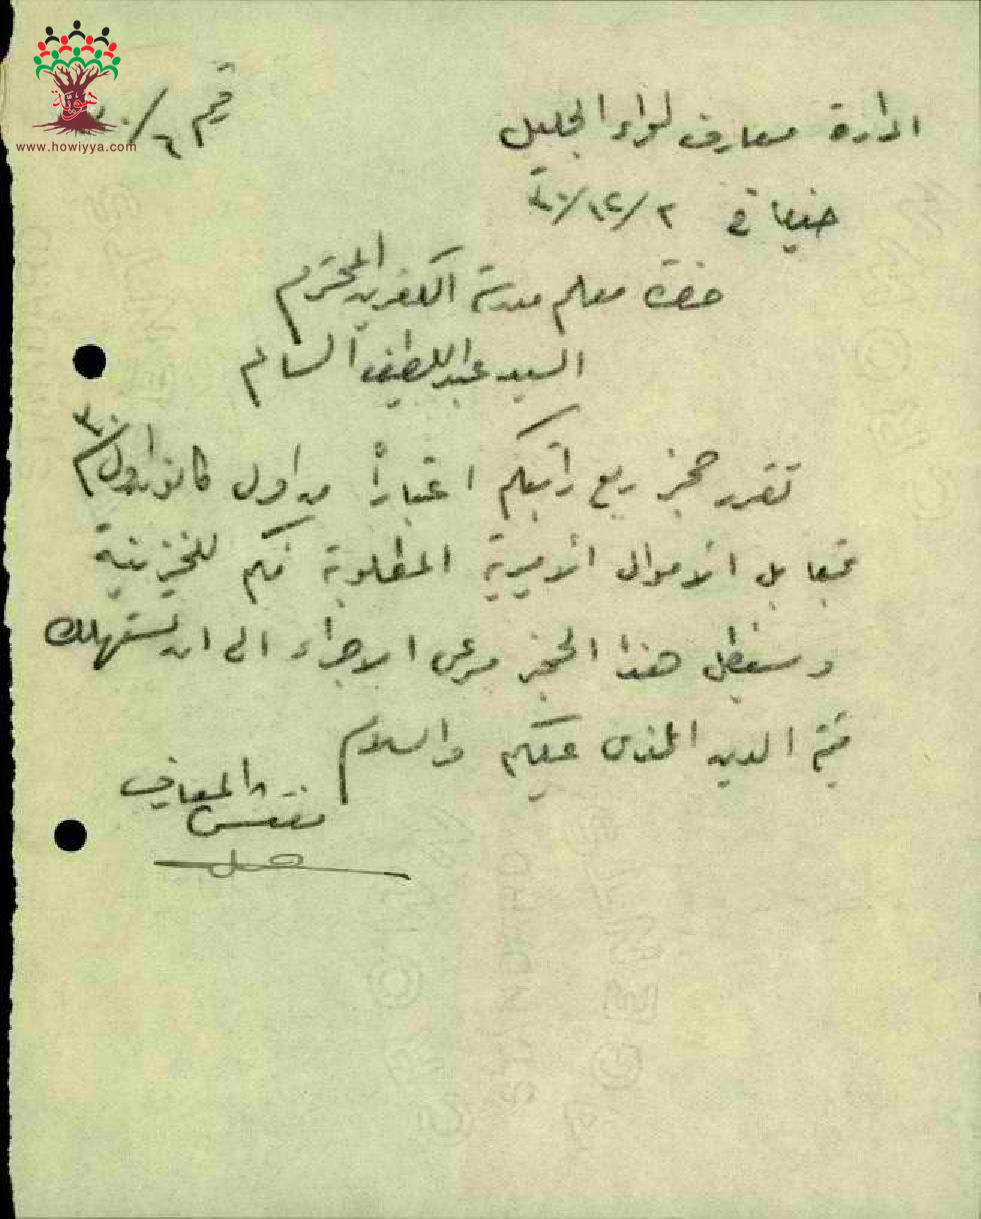 ادارة معارف لواء الجليل
حيفا في ٢/١٢/٣٠
حضرة معلم مدرسة الكفرين المحترم
السيد عبد اللطيف السالم
تقرر حجز ربع راتبكم اعتباراً من اول كانون اول ٣٠
مقابل الاموال الاميرية المطلوبة منكم للخزينة
وسيظل هذا الحجز مرعي الاجراء الى ان تستهلك
قيمة الدين الذي عليكم والسلام
مفتش المعارف
هوية
www.howiyya.com